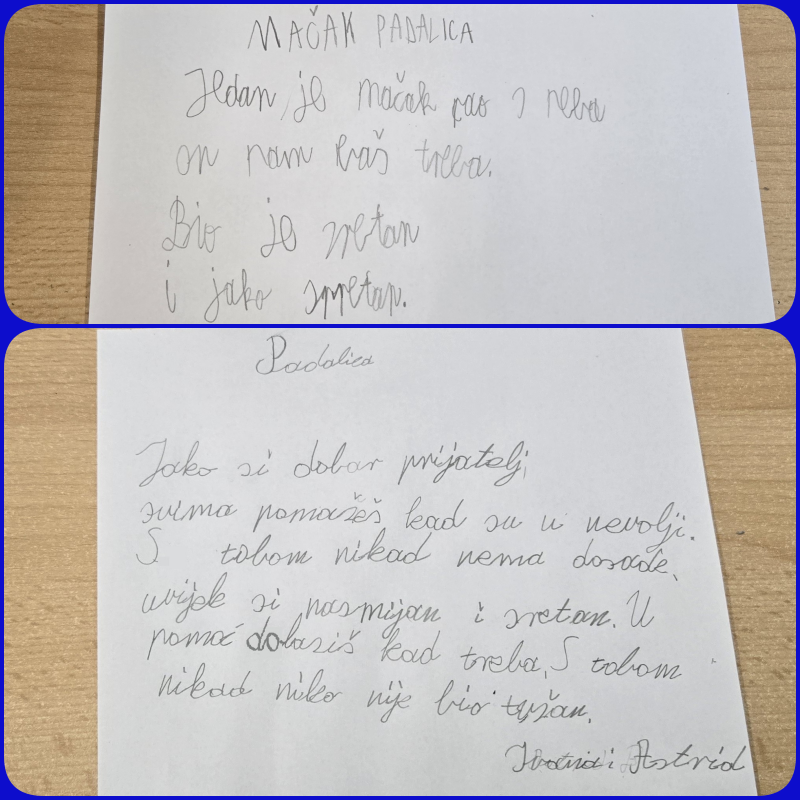 MAČAK PADALICA
Jedan je mačak pao s neba
on nam baš treba.
Bio je sretan
i jako spretan.
Padalica
Jako si dobar prijatelj,
svima pomažeš kad su u nevolji.
S tobom nikad nema dosade,
uvijek si nasmijan i sretan. U
pomoć dolaziš kad treba, S tobom
nikad niko nije bio tužan.
i Astrid